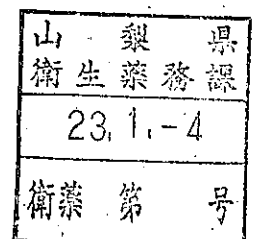 山梨県
衛生薬務課
23.1.-4
衛薬第 号